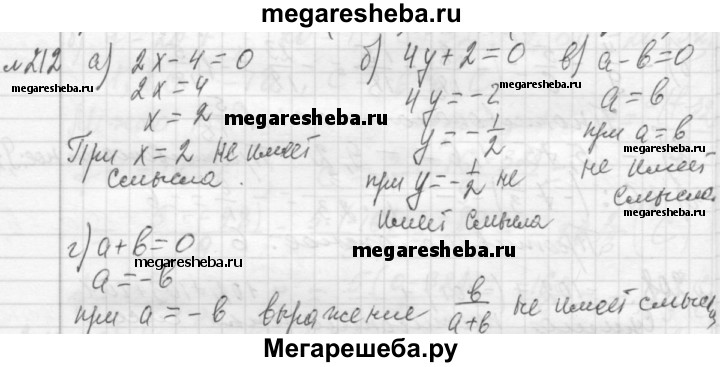 megaresheba.ru
№212 а) 2x-4=0 б) 4y+2=0 в) a-b=0
megaresheba.ru 2x=4 4y=-2 megaresheba.ru
x=2 megaresheba.ru y=-1/2 a=b
При x=2 не имеет при y=-1/2 не при a=b
смысла. имеет смысла не имеет
смысла.
megaresheba.ru
г) a+b=0 megaresheba.ru
a=-b megaresheba.ru
при a=-b выражение b/(a+b) не имеет смысла
Мегарешеба.ру